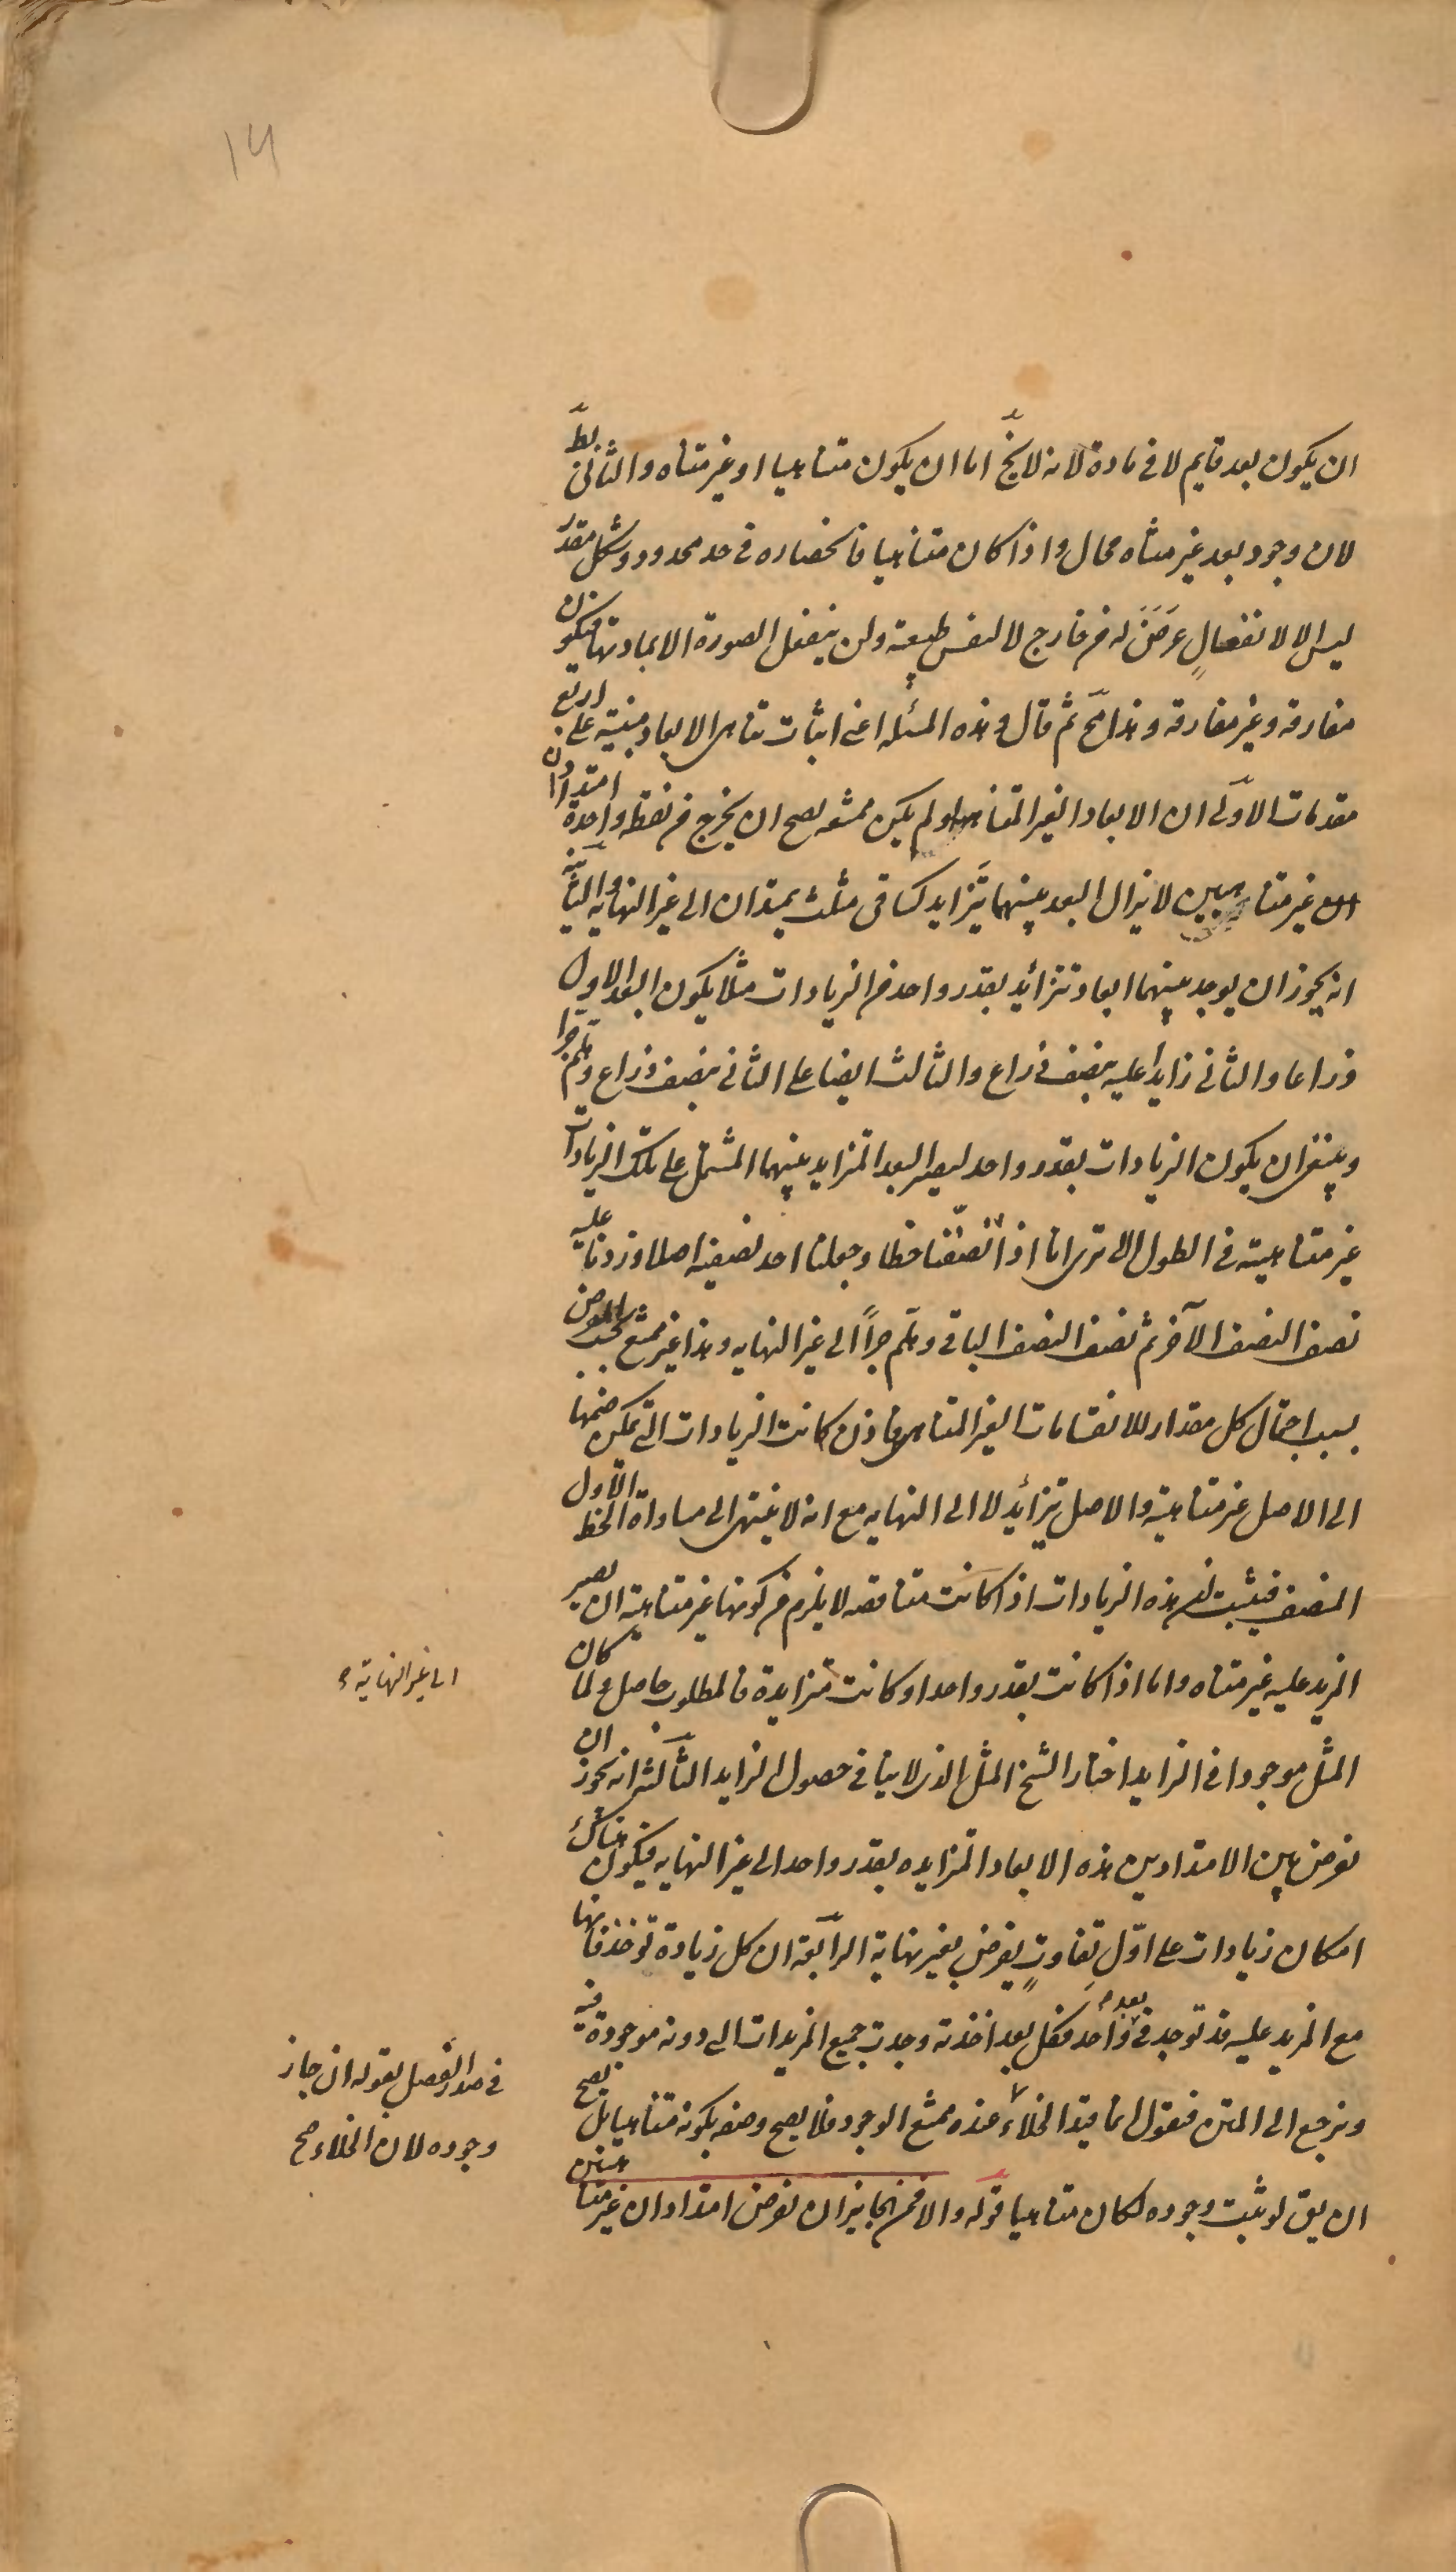 14
ان يكون بعد قايم لا فى مادة لانه لا يخ اما ان يكون متناهيا او غير متناه والثانى بط
لان وجود بعد غير متناه محال واذا كان متناهيا فانحصاره فى حد محدود وشكل مقدر
ليس الا لانفعالٍ عَرَضَ له من خارج لا لنفس طبيعته ولن ينفعل الصورة الا بمادتها فيكون
مفارقه وغير مفارقه وهذا مح ثم قال وهذه المسئله اعنى اثبات تناهى الابعاد مبنيه على اربع
مقدمات الاولى ان الابعاد الغير المتناهيه لو لم يكن ممتنعه يصح ان يخرج من نقطه واحدة امتدادان
غير متناهيين لا يزال البعد بينهما يتزايد كساقى مثلث يمتدان الى غير النهايه والثانيه
انه يجوز ان يوجد بينهما ابعاد تتزائد بقدر واحد من الزيادات مثلا يكون البعد الاول
ذراعا والثانى زايدا عليه بنصف ذراع والثالث ايضا على الثانى بنصف ذراع وهلم جرا
وينبغى ان يكون الزيادات بقدر واحد ليصير البعد المتزايد بينهما المشتمل على تلك الزيادات
غير متناهيته فى الطول الا ترى انا اذا نصّفنا خطا وجعلنا احد نصفيه اصلا وزدنا عليه
نصف النصف الآخر ثم نصف النصف الباقى وهلم جراً الى غير النهايه وهذا غير ممتنع بحسب الفرض
بسبب احتمال كل مقدار للانقسامات الغير المتناهيه فاذن كانت الزيادات التى يمكن ضمها
الى الاصل غير متناهية والاصل يتزائد لا الى النهايه مع انه لا ينتهى الى مساواة الخط الاول
المنصف فيثبت ان هذه الزيادات اذا كانت متناقصه لا يلزم من كونها غير متناهية ان يصير
المزيد عليه غير متناه واما اذا كانت بقدر واحد او كانت متزايدة فالمطلوب حاصل ولما كان
المثل موجودا فى الزايد اختار الشيخ المثل الذى لا ينافى حصول الزايد الثالثه انه يجوز ان
نفرض بين الامتدادين هذه الابعاد المتزايده بقدر واحد الى غير النهايه فيكون هناك
امكان زيادات على اوّل تفاوتٍ يفرض بغير نهاية الرابعة ان كل زيادة توخذ فانها
مع المزيد عليه قد توجد فى بعد واحد فكل بعد اخذته وجدت جميع المزيدات التى دونه موجودة فيه
ونرجع الى المتن فنقول انما قيد الخلاء عنده ممتنع الوجود فلا يصح وصفه بكونه متناهيا بل يصح
ان يق لو ثبت وجوده لكان متناهيا قوله والا فمن الجايز ان نفرض امتدادان غير متناهيين
الى غير النهاية
فى صدر الفصل بقوله ان جاز
وجوده لان الخلاء صح